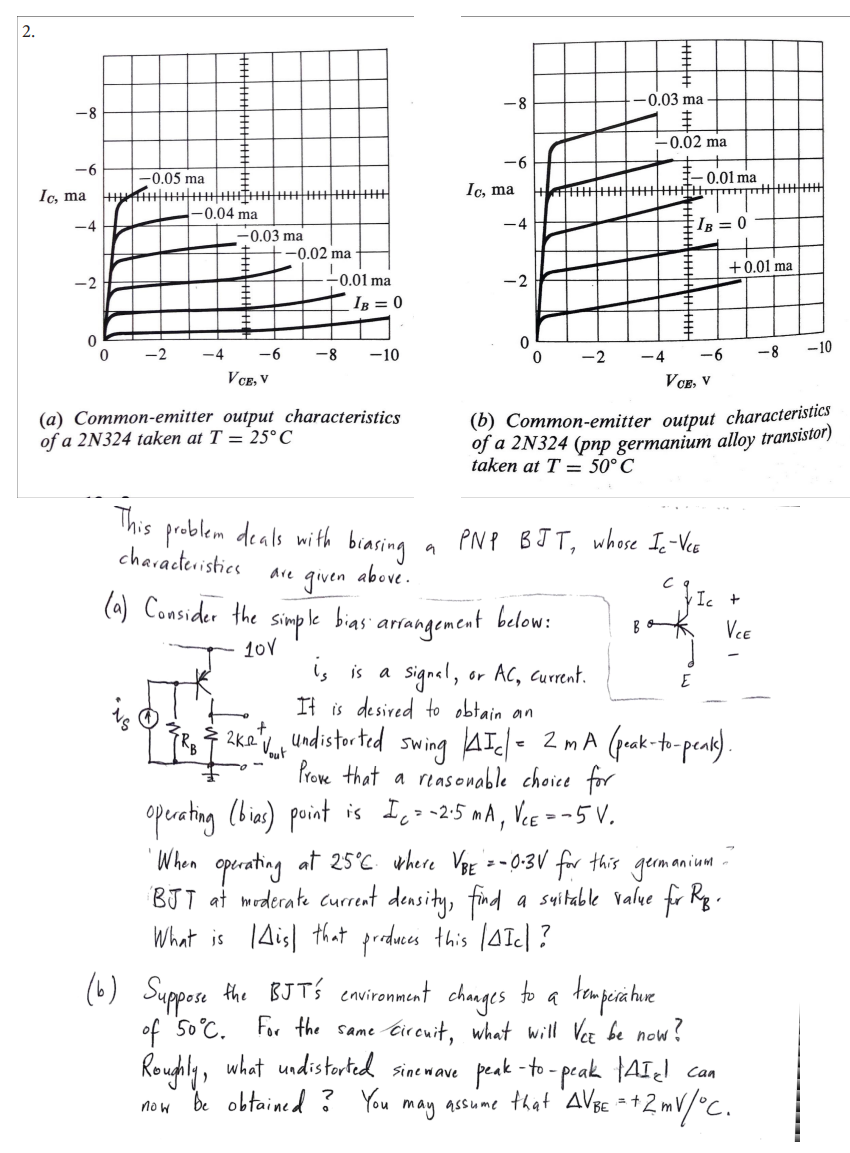 2.
-8
-6
-0.05 ma
Ic, ma
-0.04 ma
-4
-0.03 ma
-0.02 ma
-2
-0.01 ma
IB = 0
0
0 -2 -4 -6 -8 -10
VCE, V
(a) Common-emitter output characteristics
of a 2N324 taken at T = 25° C
-8
-0.03 ma
-0.02 ma
-6
-0.01 ma
Ic, ma
-4
IB = 0
+0.01 ma
-2
0
0 -2 -4 -6 -8 -10
VCE, V
(b) Common-emitter output characteristics
of a 2N324 (pnp germanium alloy transistor)
taken at T = 50° C
This problem deals with biasing a PNP BJT, whose Ic-VCE
characteristics are given above.
C
Ic +
B
VCE
-
E
(a) Consider the simple bias arrangement below:
10V
is
RB
2KΩ
+
Vout
-
is is a signal, or AC, current.
It is desired to obtain an
undistorted swing |ΔIc| = 2 mA (peak-to-peak).
Prove that a reasonable choice for
operating (bias) point is Ic = -2.5 mA, VCE = -5 V.
When operating at 25°C where VBE = -0.3V for this germanium
BJT at moderate current density, find a suitable value for RB.
What is |Δis| that produces this |ΔIc| ?
(b) Suppose the BJT's environment changes to a temperature
of 50°C. For the same circuit, what will VCE be now?
Roughly, what undistorted sinewave peak-to-peak |ΔIc| can
now be obtained? You may assume that ΔVBE = +2 mV/°C.